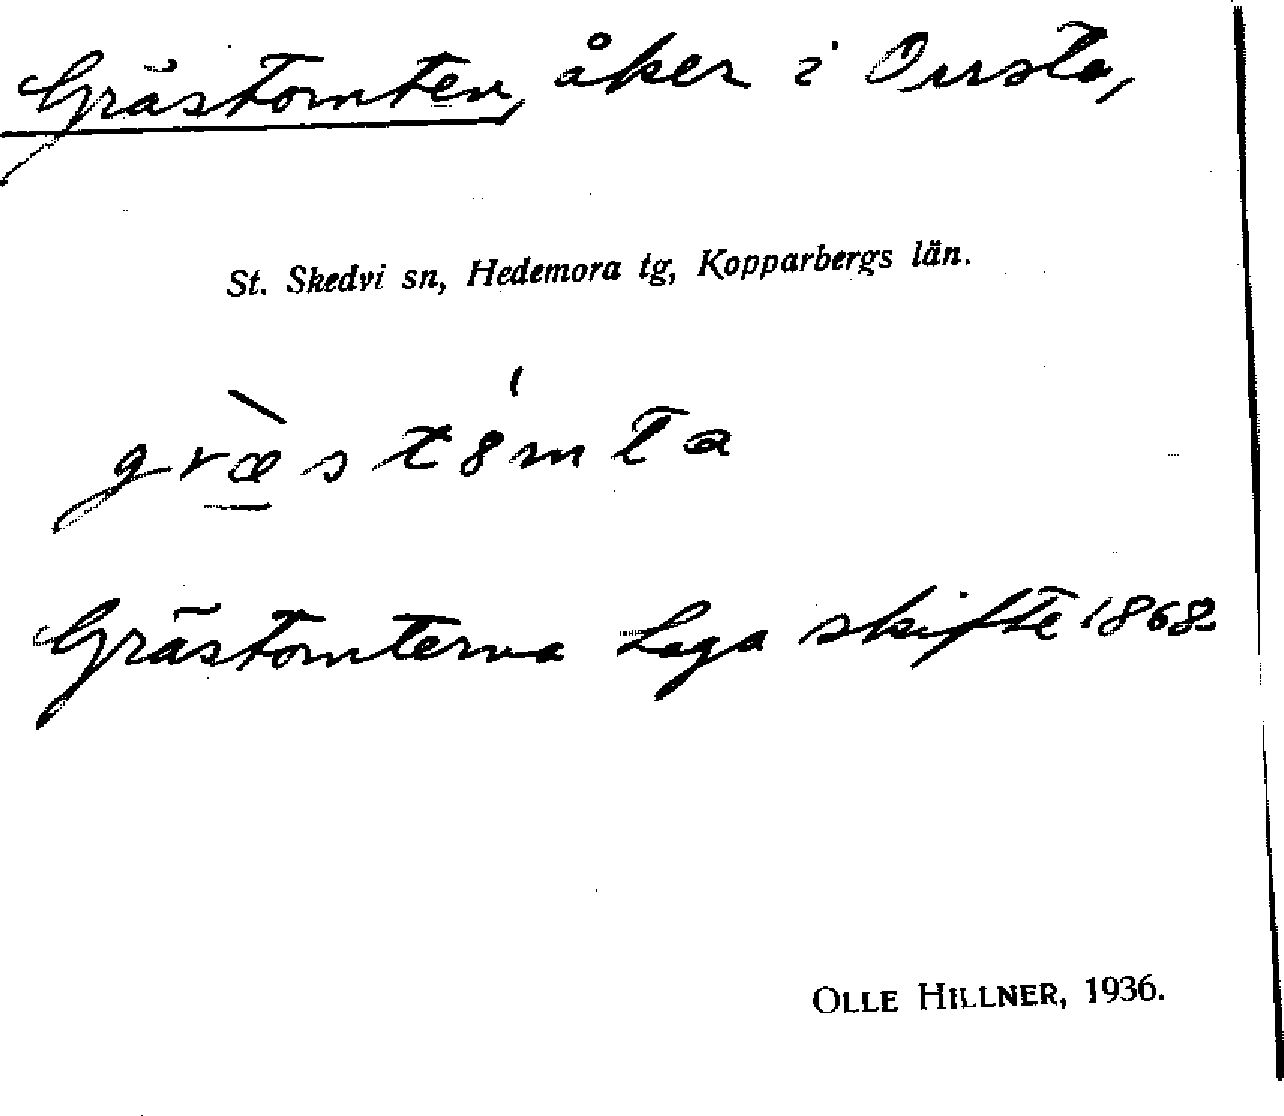 Grästomten, åker i Onsta,
St. Skedvi sn, Hedemora tg, Kopparbergs län.
græ̱̀st8́mta
Grästomterna Laga skifte 1868
OLLE HILLNER, 1936.